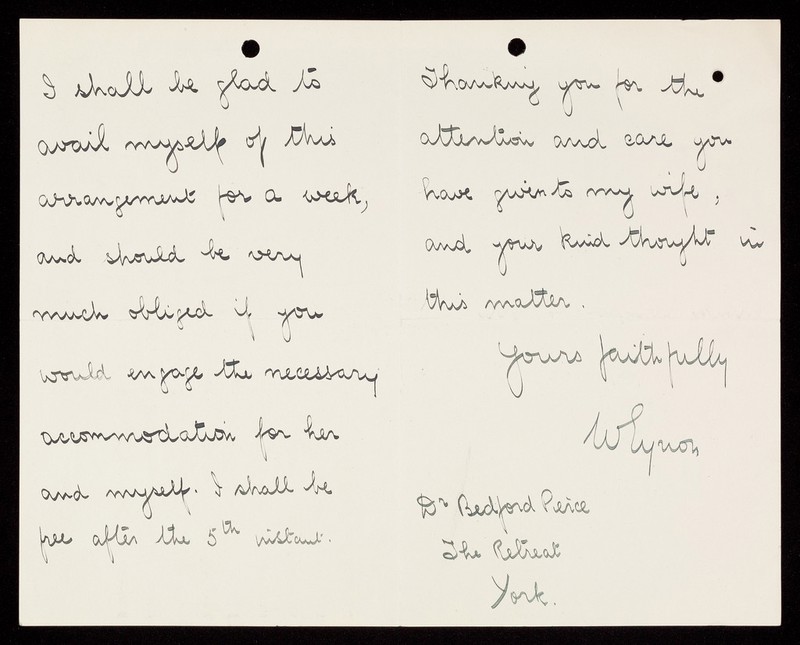 I shall be glad to
avail myself of this
arrangement for a week,
and should be very
much obliged if you
would engage the necessary
accommodation for her
and myself. I shall be
free after the 5th instant.
Thanking you for the
attention and care you
have given to my wife,
and your kind thought in
this matter.
Yours faithfully
W Eynon
Dr Bedford Pierce
The Retreat
York.